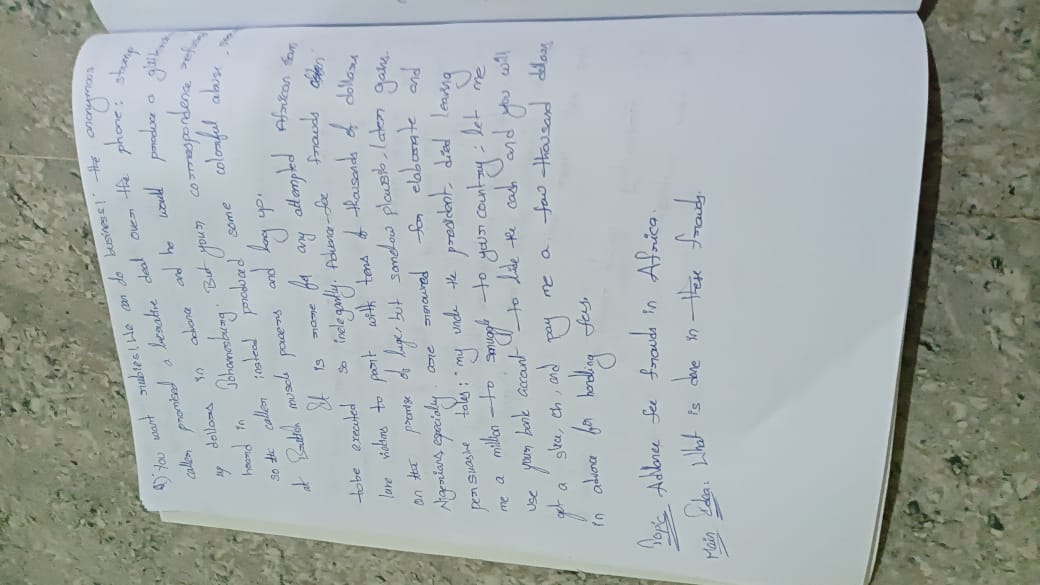 Q) You want rubies! We can do business! the anonymous
caller promised a lucrative deal over the phone: stump
up dollars in advance and he would produce a
heard in Johannesburg. But your correspondence
so the caller instead produced some colorful abuse.
at British muscle powers and hang up.
It is rare for any attempted African scam
to be executed so inelegantly. Advance-fee frauds often
lure victims to part with tens of thousands of dollars
on the promise of high, but somehow plausib, later gains.
Nigerians especially are renowned for elaborate and
persuasive tales: my uncle the president, died leaving
me a million to smuggle to your country: let me
use your bank account to hide the cash and you will
get a slice, oh, and pay me a few thousand dollars
in advance for handling fees.
Topic Advance fee frauds in Africa.
Main Idea: What is done in these frauds.